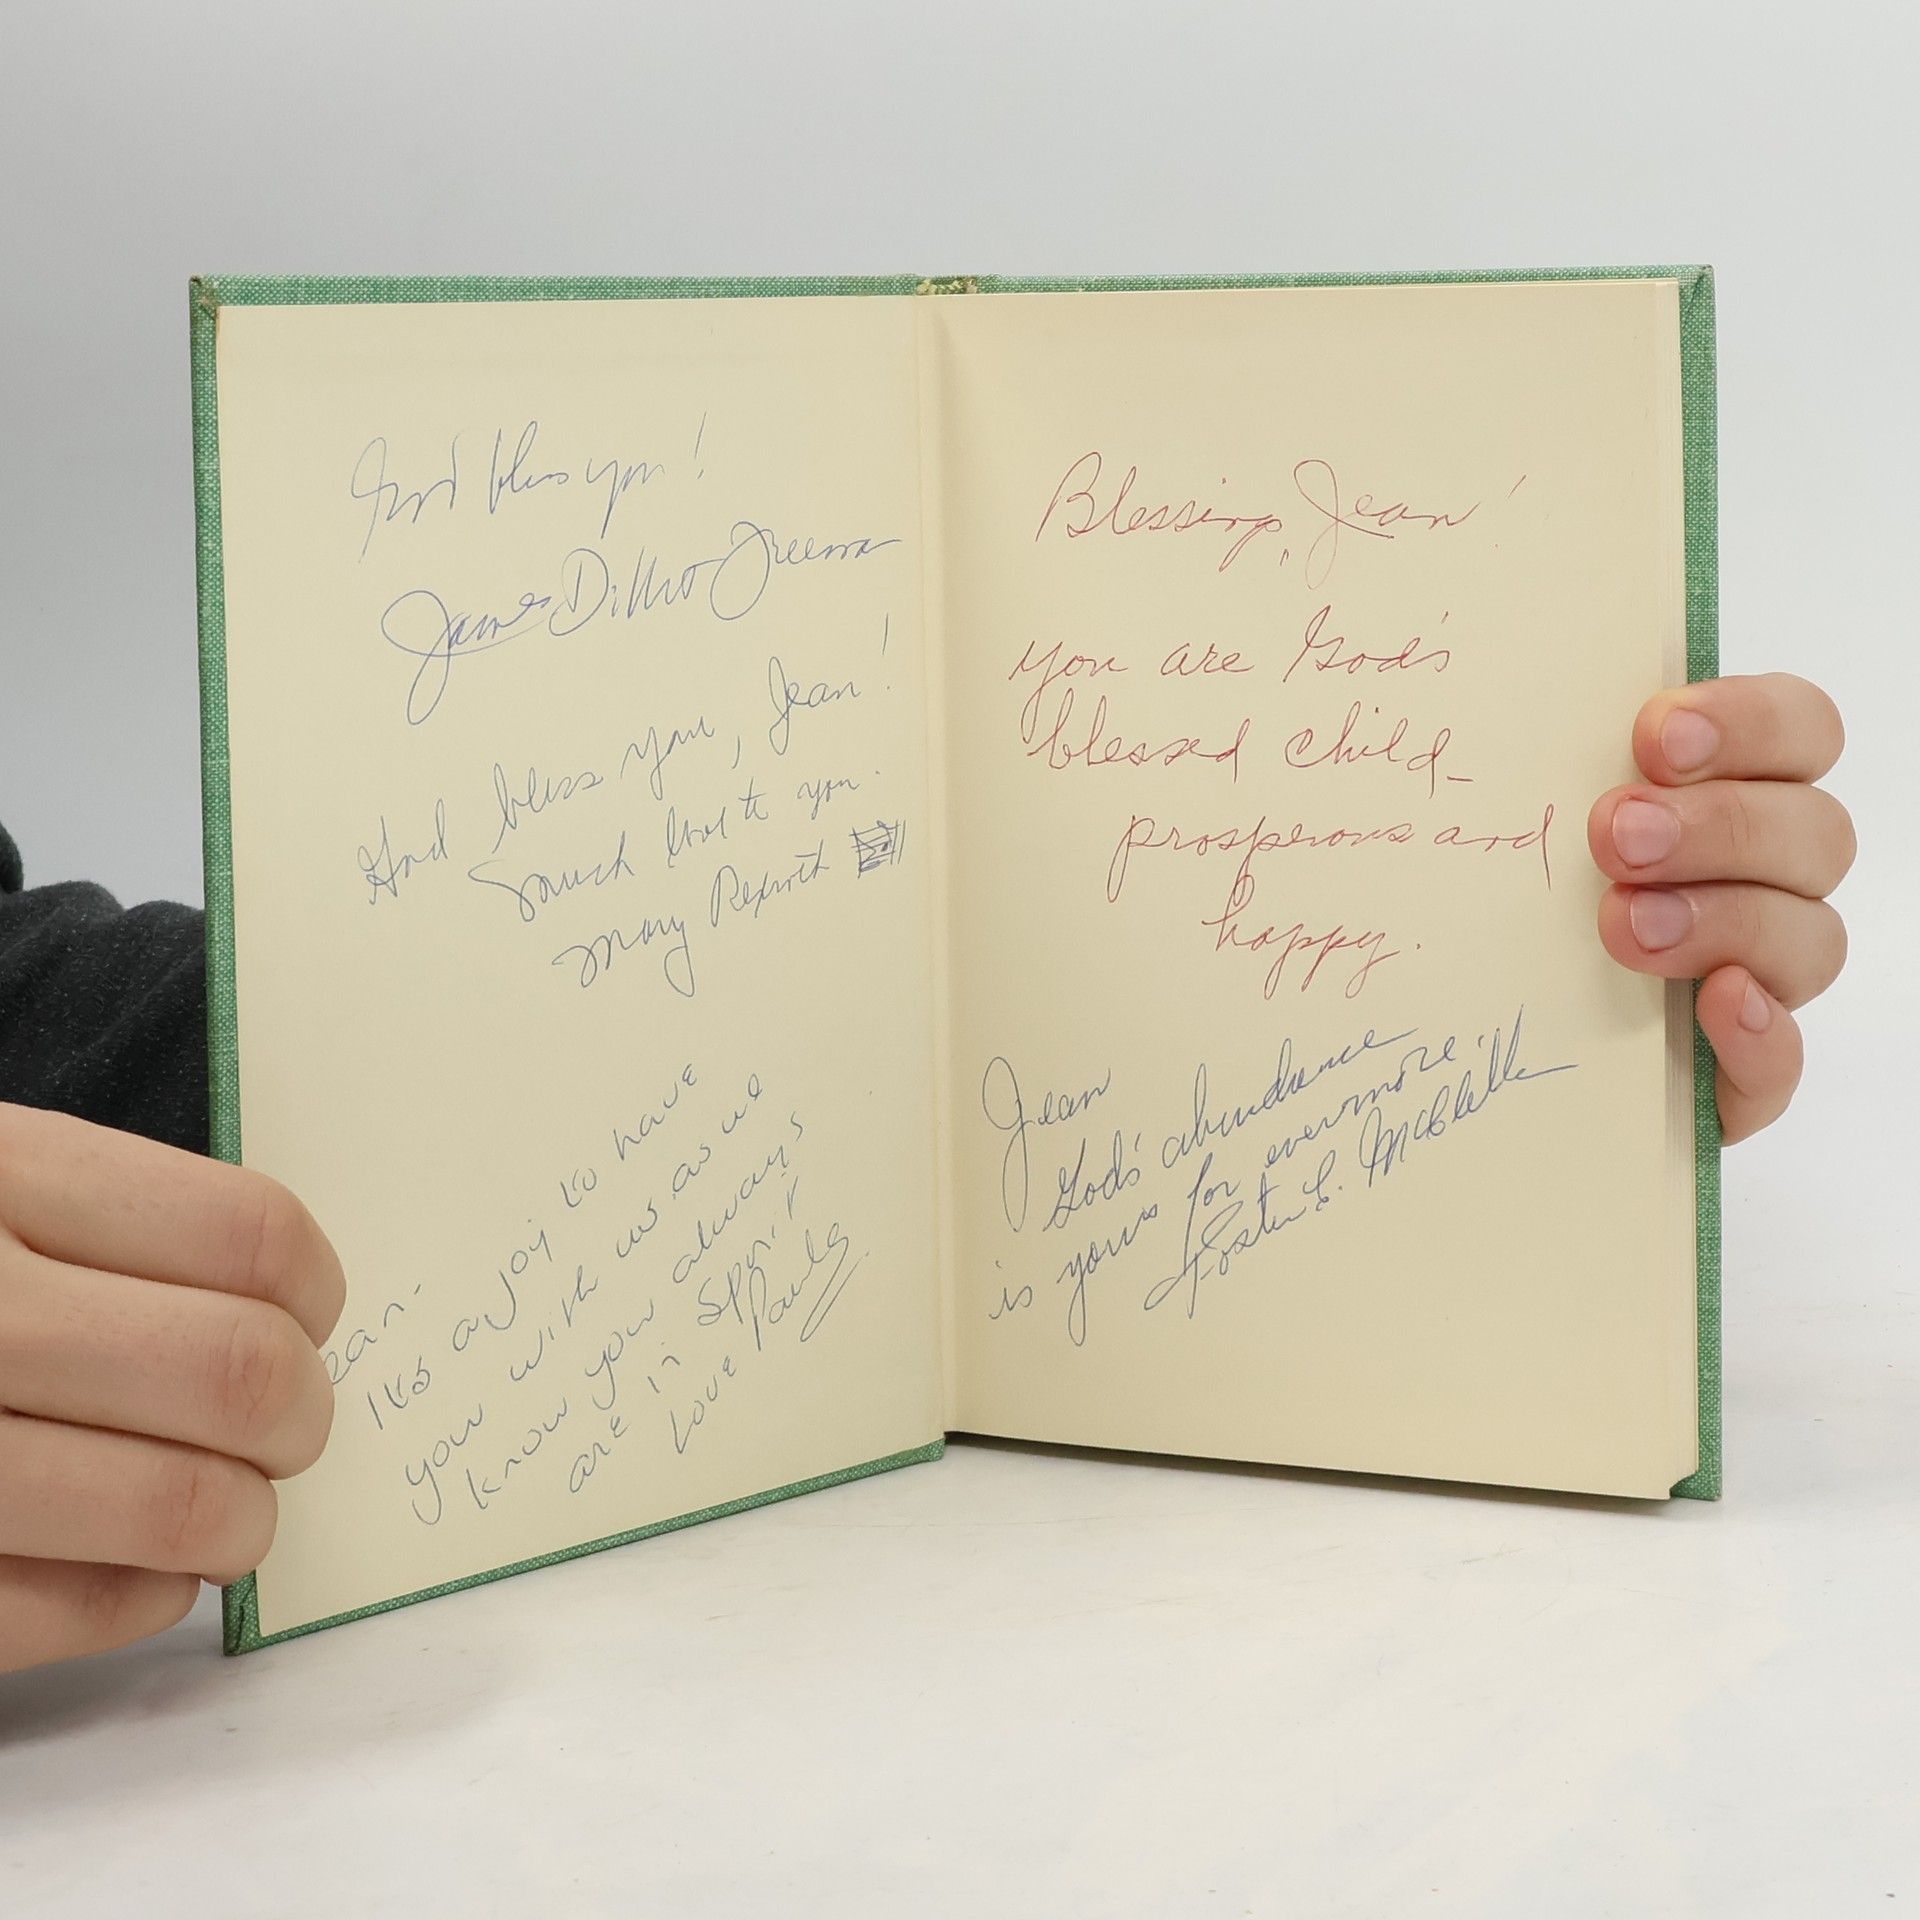 God bless you!
James Dillet Freeman
God bless you, Jean!
Much love to you.
Mary Rexroth
ean-
Its a joy to have
you with us as we
know you always
are in Spirit
Love Paula
Blessings, Jean!
You are God's
blessed child-
prosperous and
happy.
Jean
God's abundance
is yours for evermore.
Foster E. McClellan